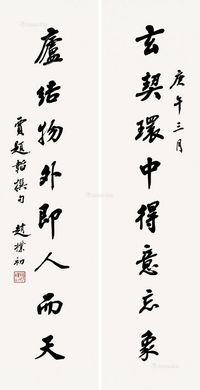 庚午三月
玄契環中得意忘象
廬結物外即人而天
賈題韜撰句 趙樸初